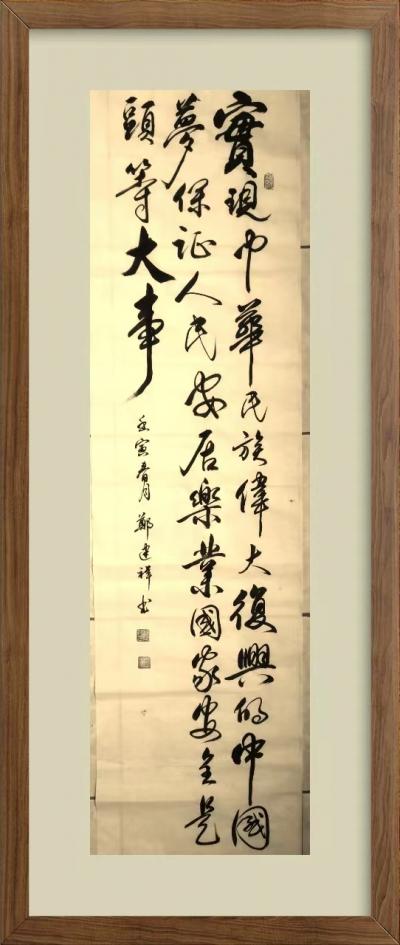 實現中華民族偉大復興的中國
夢保证人民安居樂業國家安全是
頭等大事
壬寅春月鄭建祥书